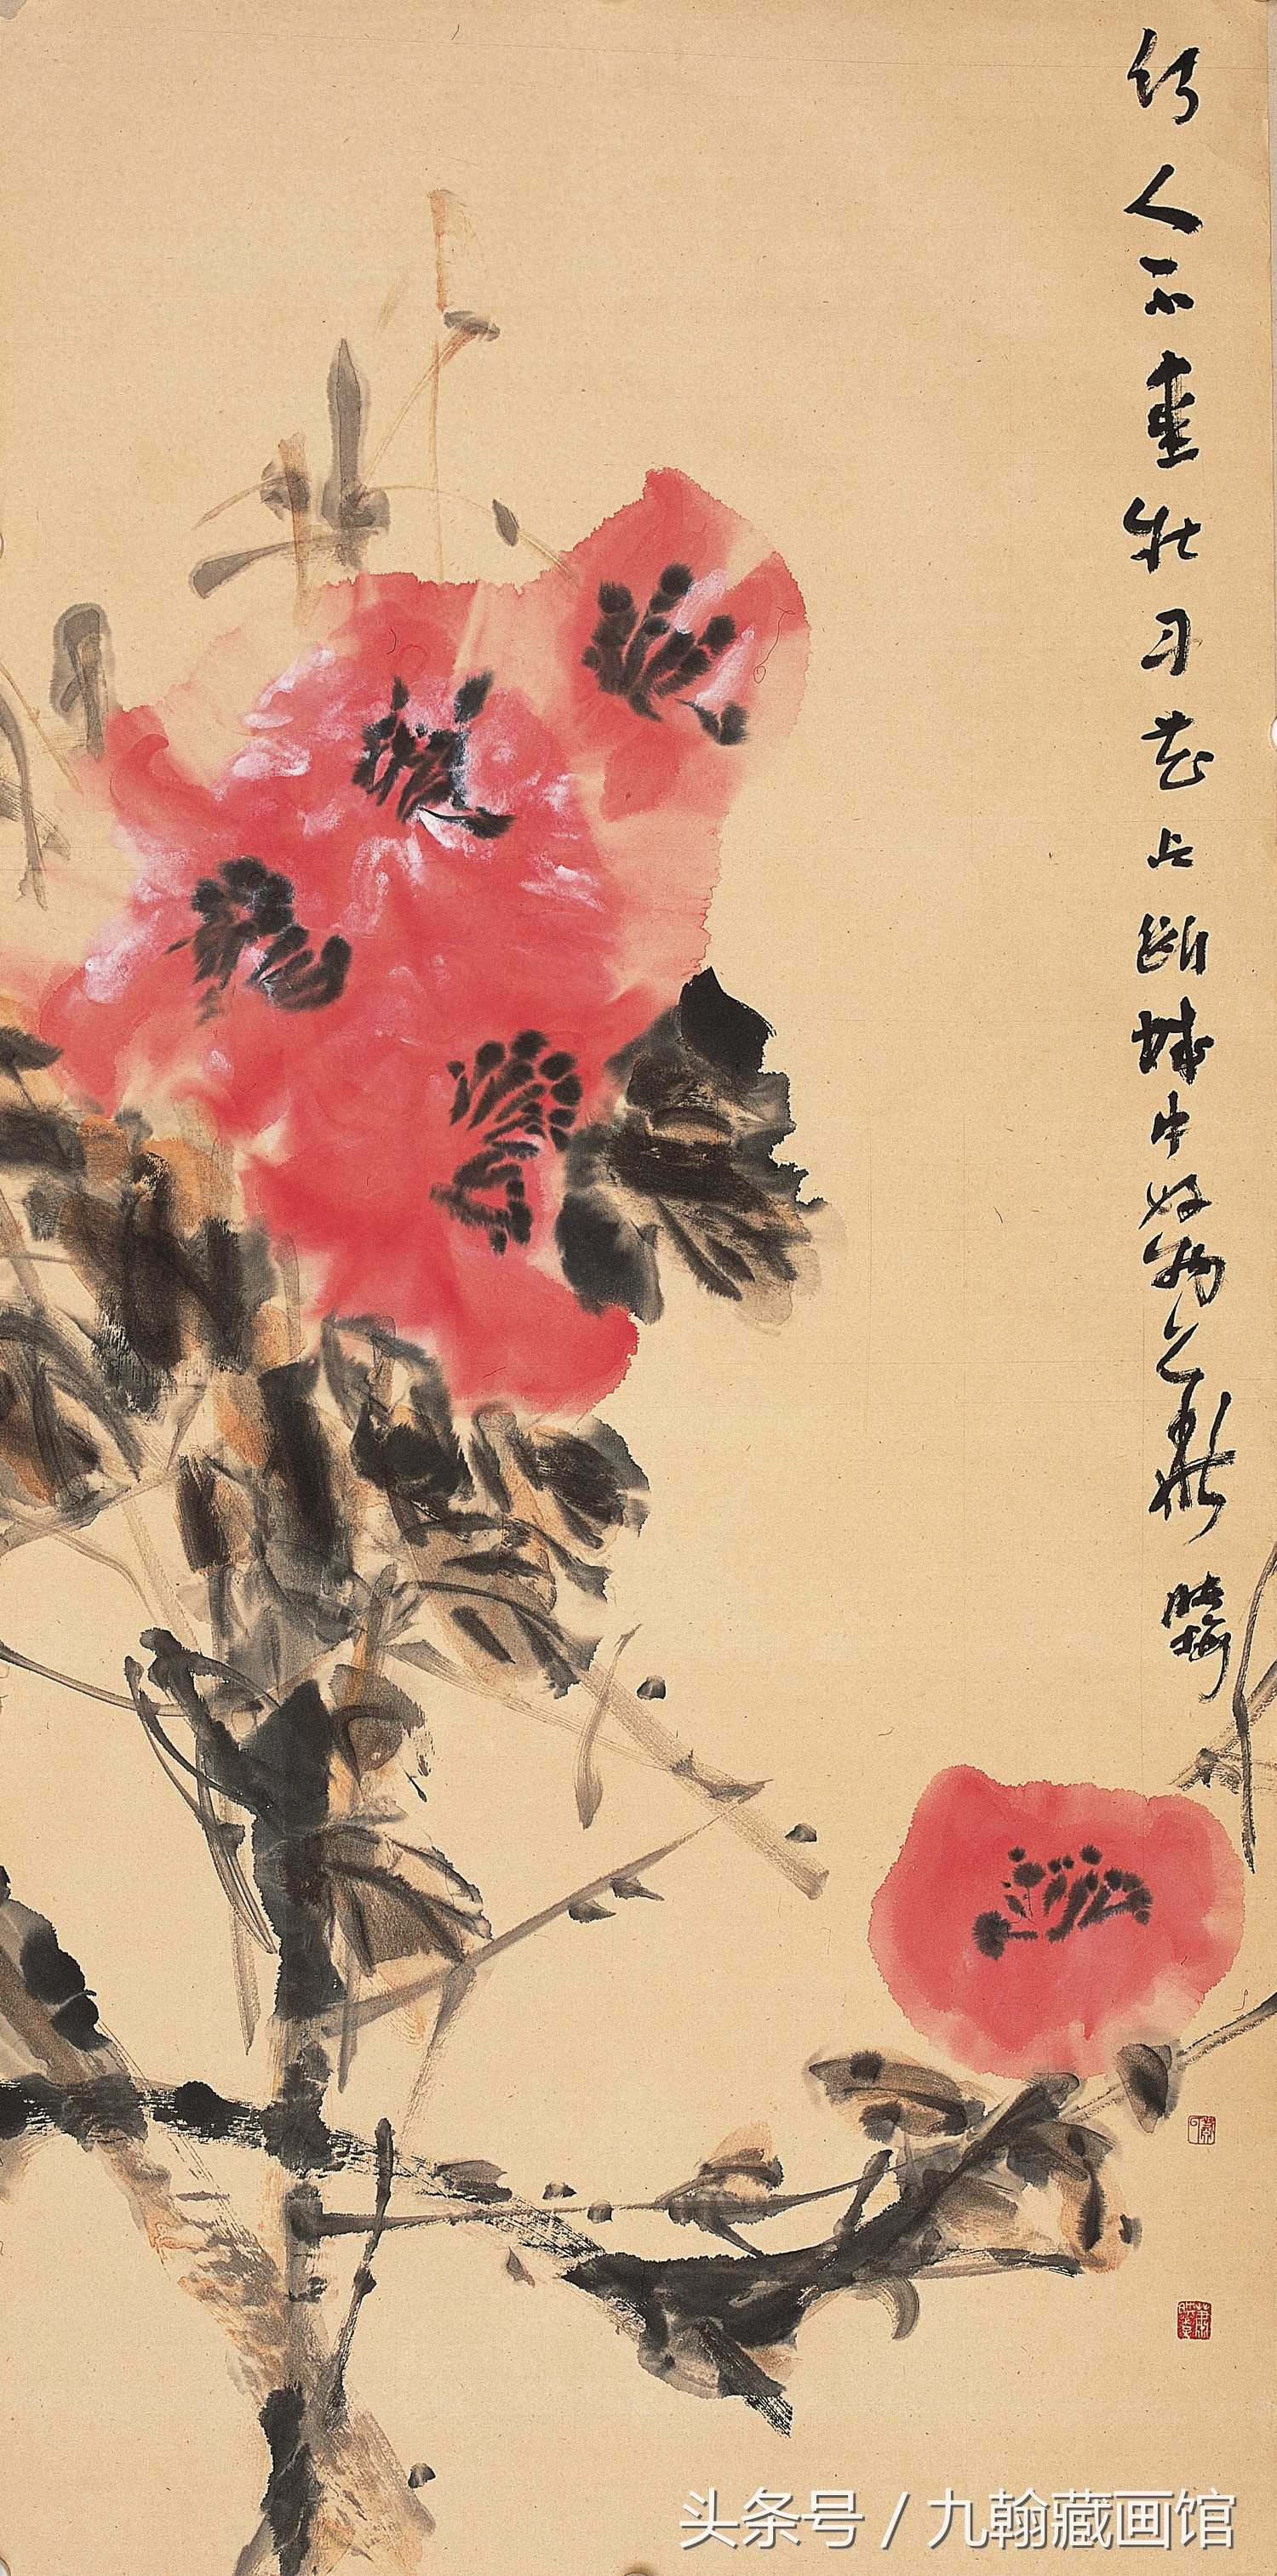 何人不爱牡丹花占断城中好物華
头条号 / 九翰藏画馆